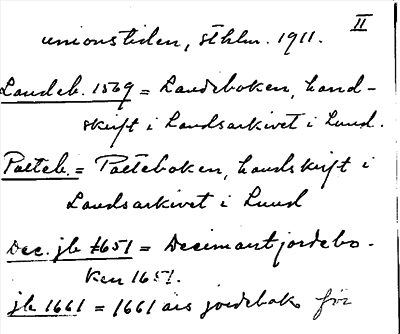 II
unionstiden, Sthlm. 1911.
Landeb. 1569 = Landeboken, hand-
skrift i Landsarkivet i Lund.
Palteb. = Palteboken, handskrift i
Landsarkivet i Lund
Dec. jb 1651 = Decimantjordebo-
ken 1651.
jb 1661 = 1661 års jordebok för